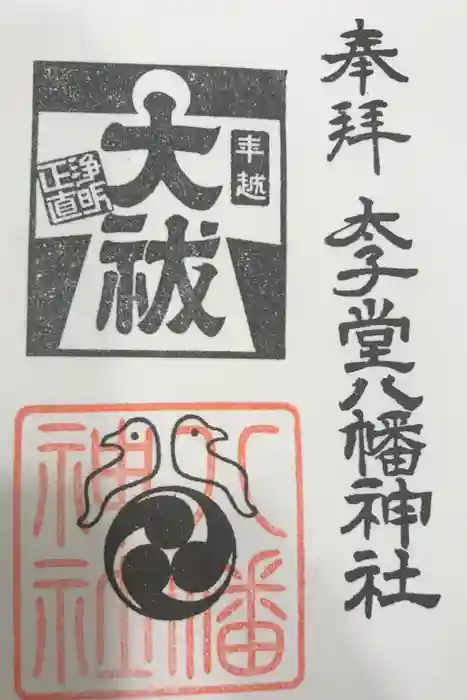 奉拝 太子堂八幡神社
年越
大祓
浄明
正直
八幡
神社